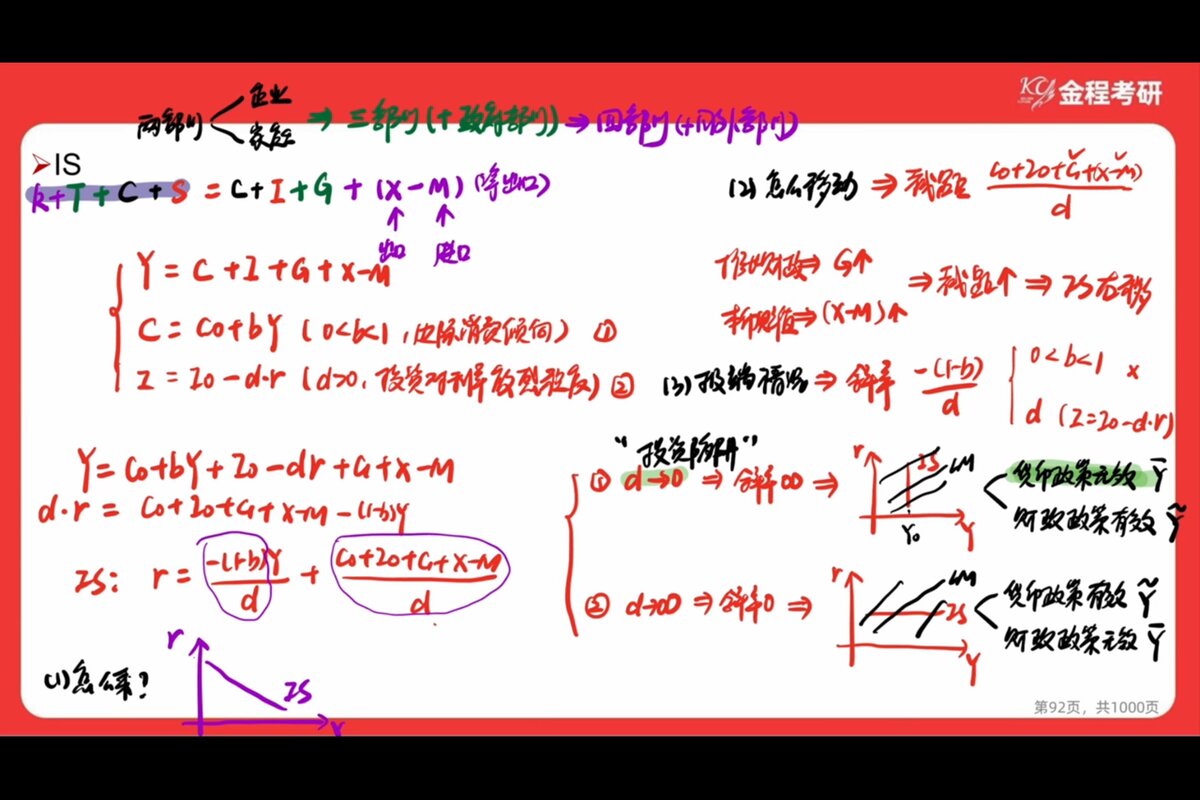 KCY 金程考研
两部门 企业 家庭 ⇒ 三部门(+政府部门) ⇒ 四部门(+国外部门)
➢IS
k+T+C+S = C+I+G+(X-M) (净出口)
出口 进口
Y = C+I+G+X-M
C = C0+bY (0<b<1, 边际消费倾向) ①
I = I0-d·r (d>0, 投资对利率敏感程度) ②
Y=C0+bY+I0-dr+G+X-M
d·r = C0+I0+G+X-M-(1-b)Y
IS: r = -(1-b)Y/d + C0+I0+G+X-M/d
(1) 怎么来?
r
IS
Y
(2) 怎么移动 ⇒ 截距 C0+I0+G+(X-M)/d
财政⇒ G↑
⇒ 截距↑ ⇒ IS右移
⇒ (X-M)↑
(3) 极端情况 ⇒ 斜率 -(1-b)/d
0<b<1 ×
d (I=I0-d·r)
"投资陷阱"
① d→0 ⇒ 斜率∞ ⇒
r IS LM
Y0 Y
货币政策无效 Y̅
财政政策有效 Ỹ
② d→∞ ⇒ 斜率0 ⇒
r LM
IS
Y
货币政策有效 Ỹ
财政政策无效 Y̅
第92页，共1000页